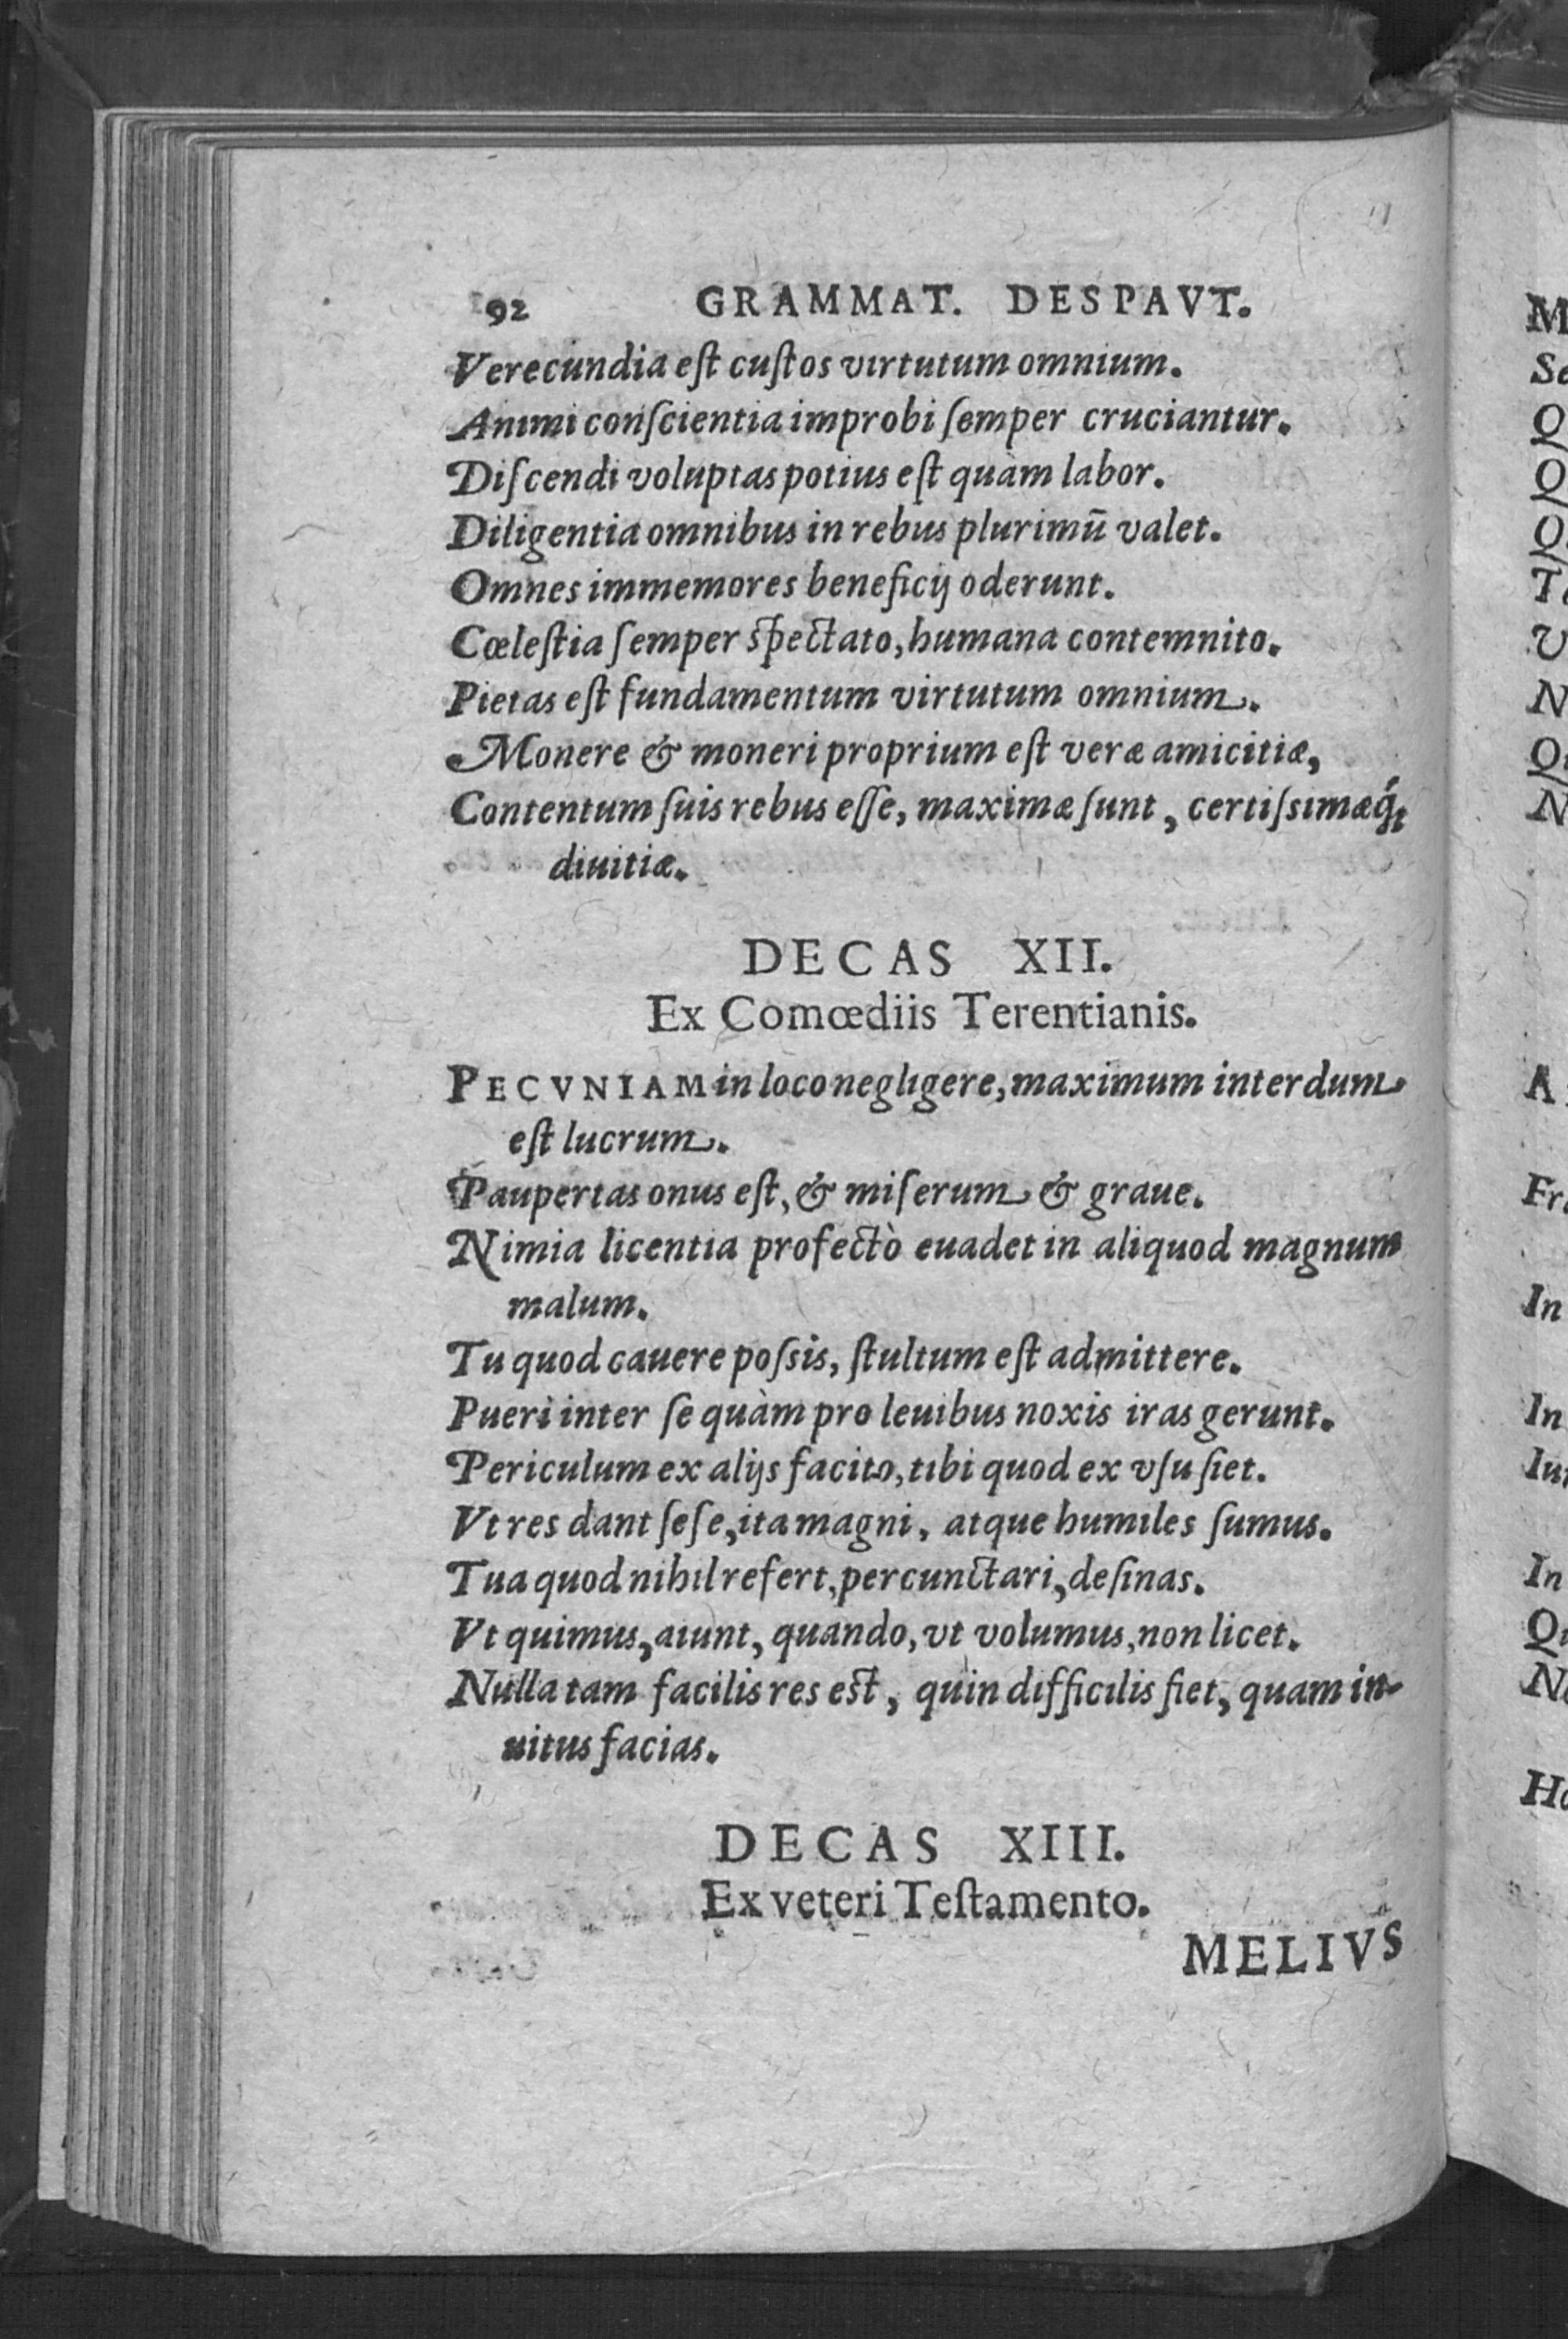 92 GRAMMAT. DESPAVT.
Verecundia eſt cuſtos virtutum omnium.
Animi conſcientia improbi ſemper cruciantur.
Diſcendi voluptas potius eſt quàm labor.
Diligentia omnibus in rebus plurimū valet.
Omnes immemores beneficij oderunt.
Cœleſtia ſemper spectato, humana contemnito.
Pietas eſt fundamentum virtutum omnium.
Monere & moneri proprium eſt veræ amicitiæ,
Contentum ſuis rebus eſſe, maximæ ſunt, certiſsimæq́;
diuitiæ.
DECAS XII.
Ex Comœdiis Terentianis.
PECVNIAM in loco negligere, maximum interdum
eſt lucrum.
Paupertas onus eſt, & miſerum & graue.
Nimia licentia profectò euadet in aliquod magnum
malum.
Tu quod cauere poſsis, ſtultum eſt admittere.
Pueri inter ſe quàm pro leuibus noxis iras gerunt.
Periculum ex alijs facito, tibi quod ex vſu ſiet.
Vt res dant ſeſe, ita magni, atque humiles ſumus.
Tua quod nihil refert, percunctari, deſinas.
Vt quimus, aiunt, quando, vt volumus, non licet.
Nulla tam facilis res est, quin difficilis fiet, quam in-
uitus facias.
DECAS XIII.
Ex veteri Teſtamento.
MELIVS
M
Se
Q
Q
Q
T
V
N
Qu
N
A
Fr
In
In
Iu
In
Qu
N
H